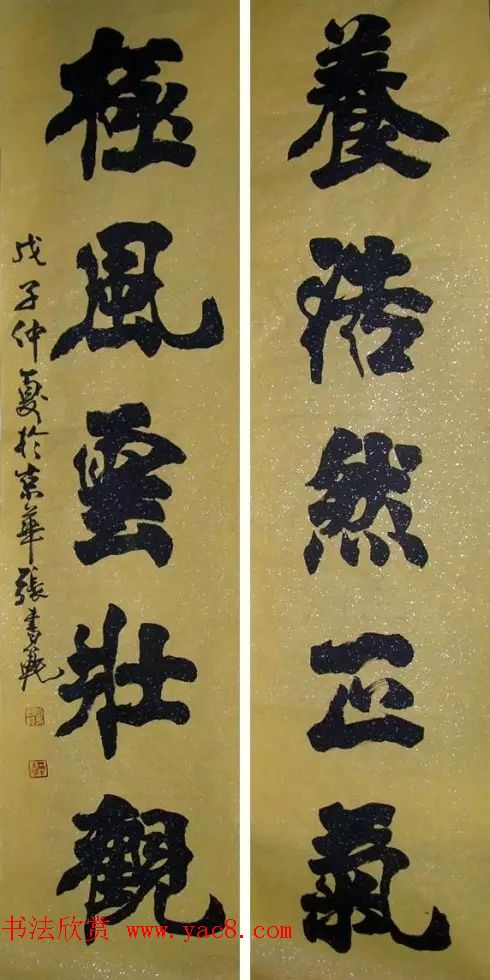 養浩然正氣
極風雲壯觀
戊子仲夏於京華張書範
书法欣赏 www.yac8.com